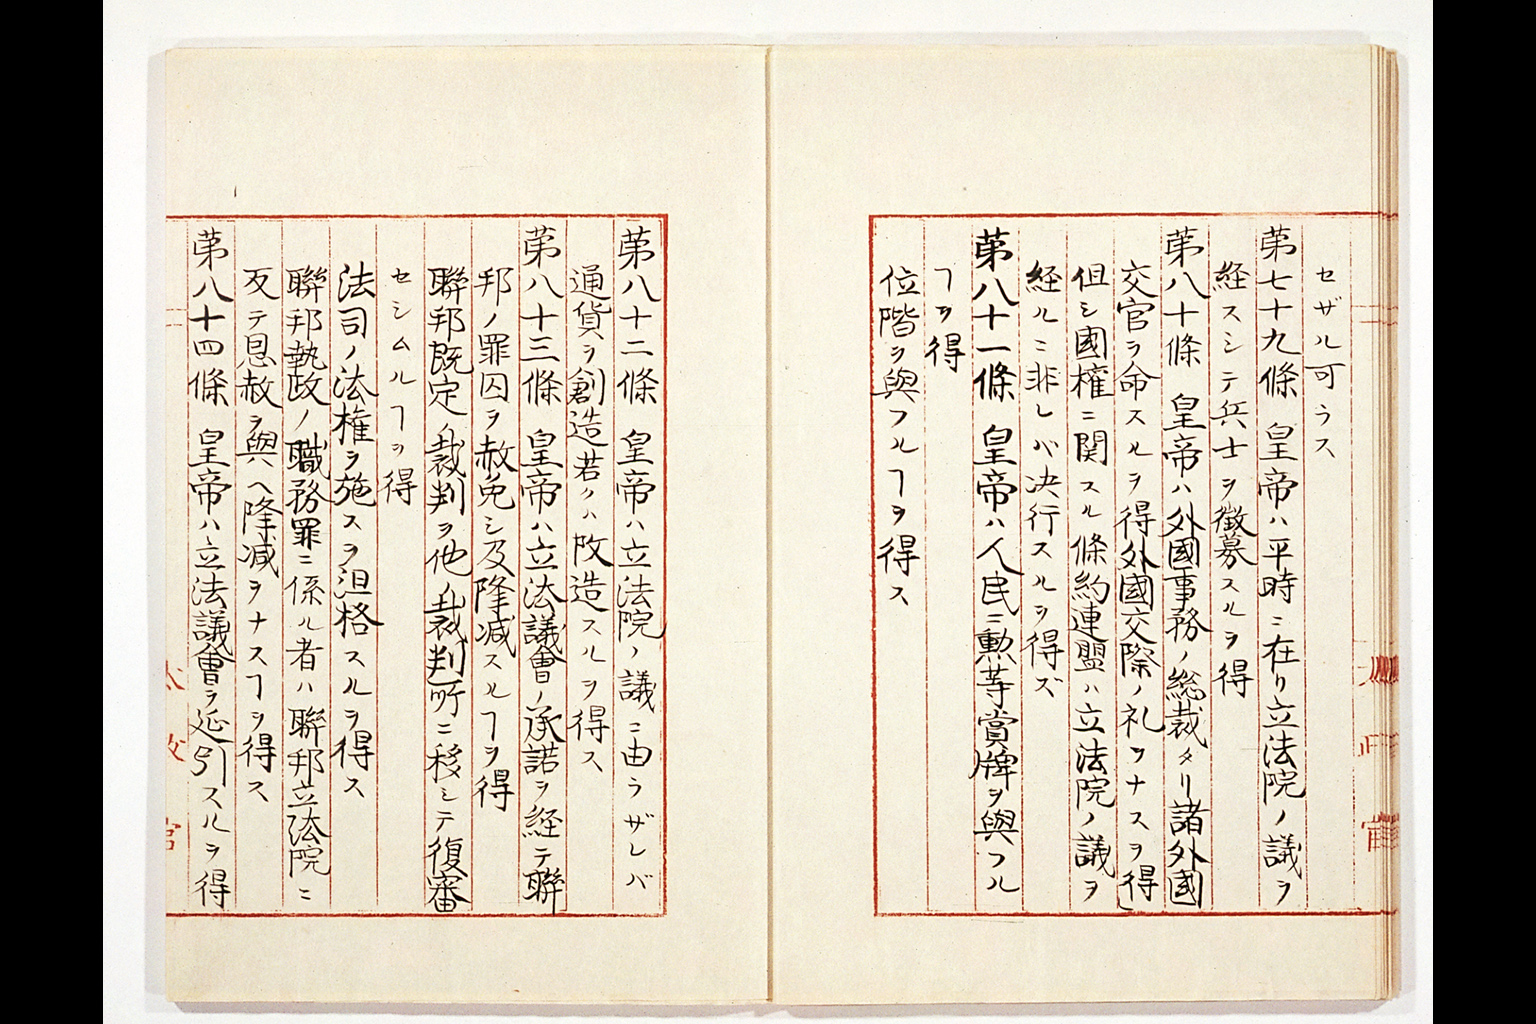 セザル可ラス
第七十九條 皇帝ハ平時ニ在リ立法院ノ議ヲ
経スシテ兵士ヲ徴募スルヲ得
第八十條 皇帝ハ外國事務ノ総裁タリ諸外國
交官ヲ命スルヲ得外國交際ノ礼ヲナスヲ得
但シ國権ニ関スル條約連盟ハ立法院ノ議ヲ
経ルニ非レバ决行スルヲ得ズ
第八十一條 皇帝ハ人民ニ勲等賞牌ヲ與フル
ヿヲ得
位階ヲ與フルヿヲ得ス
第八十二條 皇帝ハ立法院ノ議ニ由ラザレバ
通貨ヲ創造若クハ改造スルヲ得ス
第八十三條 皇帝ハ立法議會ノ承諾ヲ経テ聯
邦ノ罪囚ヲ赦免シ及降减スルヿヲ得
聯邦既定ノ裁判ヲ他ノ裁判所ニ移シテ復審
セシムルヿヲ得
法司ノ法権ヲ施スヲ沮格スルヲ得ス
聯邦執政ノ職務罪ニ係ル者ハ聯邦立法院ニ
反テ恩赦ヲ與ヘ降减ヲナスヿヲ得ス
第八十四條 皇帝ハ立法議會ヲ延引スルヲ得
太政官